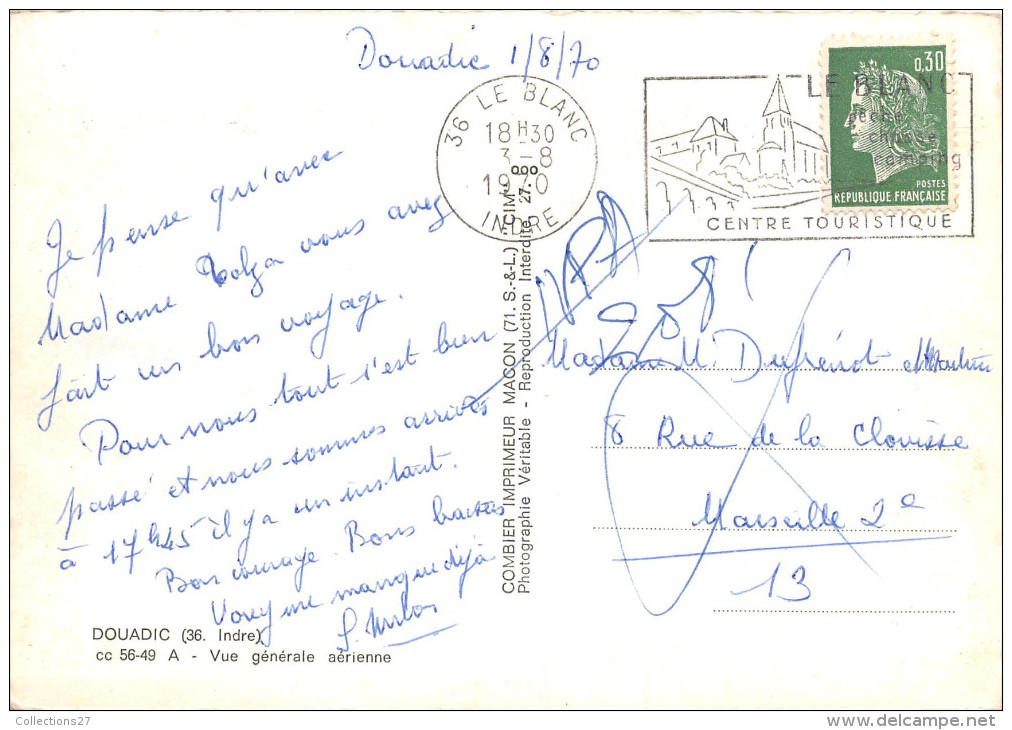 Douadic 1/8/70
36 LE BLANC
18H30
3-8
1970
INDRE
LE BLANC
pêche
chasse
camping
CENTRE TOURISTIQUE
0,30
POSTES
REPUBLIQUE FRANÇAISE
Je pense qu'avec
Madame vous avez
fait un bon voyage.
Pour nous tout s'est bien
passé et nous sommes arrivés
à 17h45 il y a un instant.
Bon courage. Bons baisers
Vovey me manque déjà
DOUADIC (36. Indre)
cc 56-49 A - Vue générale aérienne
COMBIER IMPRIMEUR MACON (71. S.-&-L.) (CIM)
Photographie Véritable - Reproduction Interdite 27.
Madame M. Dufrénot
8 Rue de la Clovisse
Marseille 2e
13
Collections27
delcampe.net